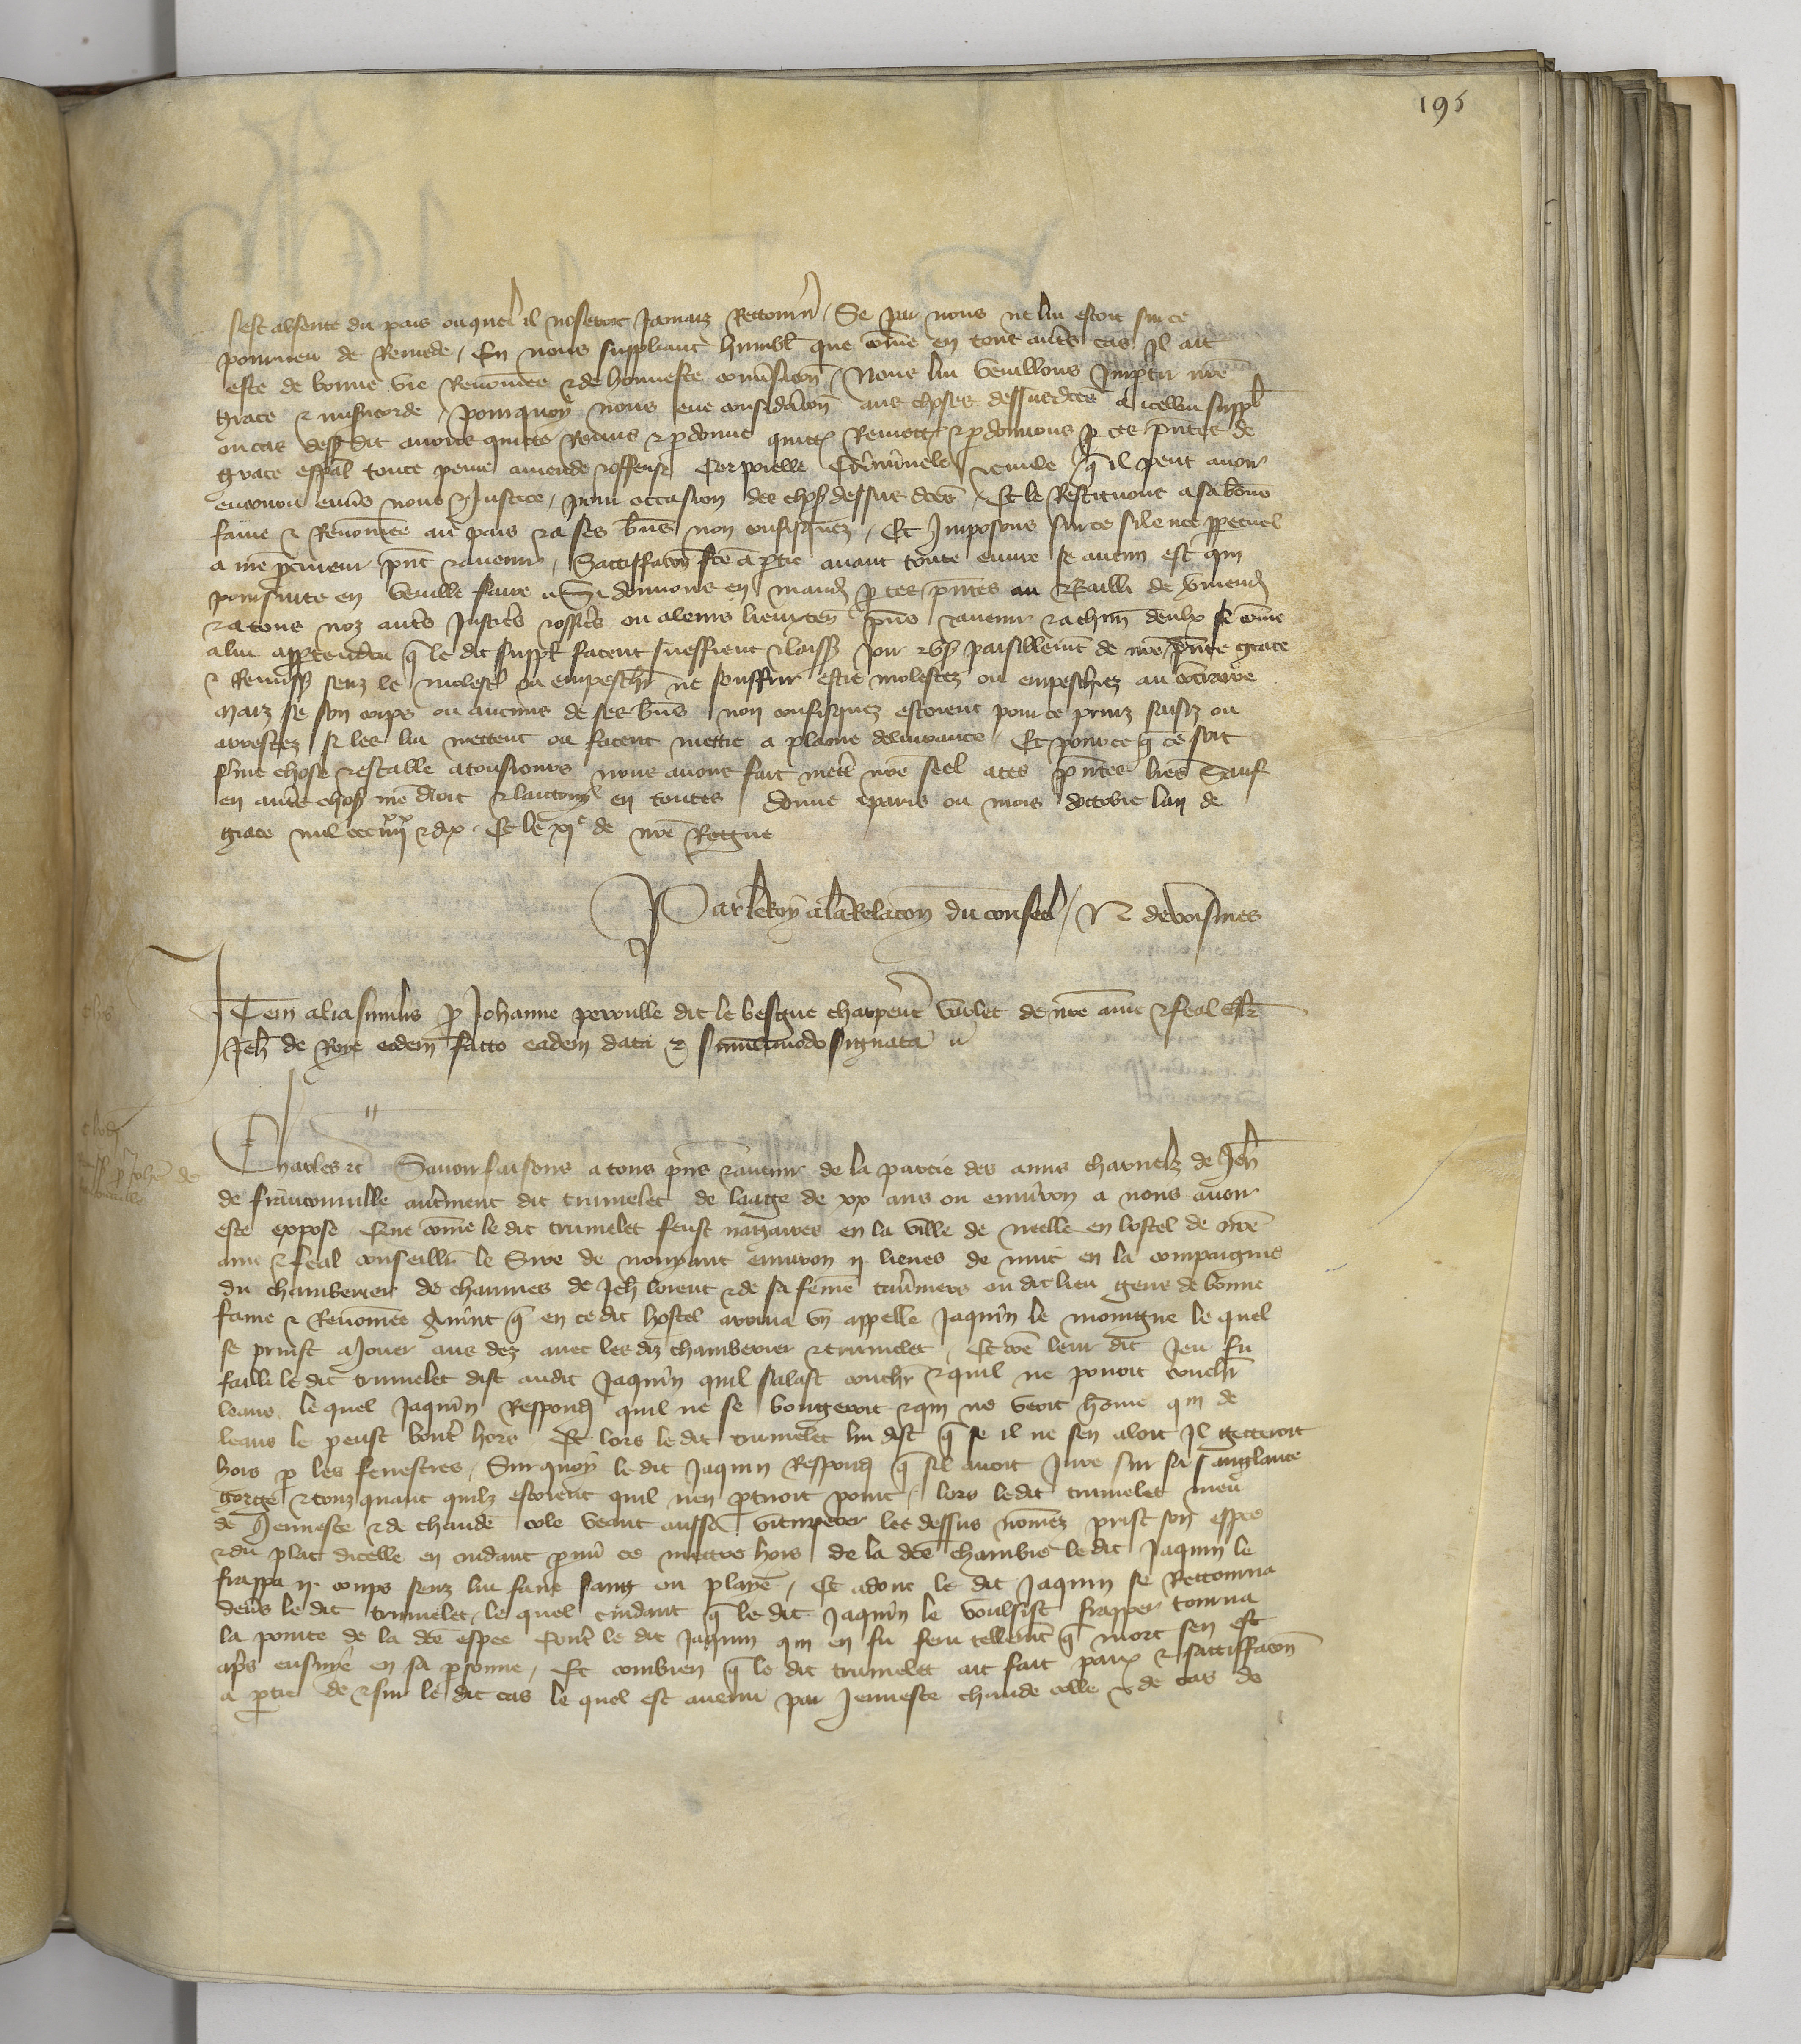 195
sest absente du pais ouquel il noseroit Jamaiz Retourn̄ / Se par nous ne lui estoit sur ce
pourveu de Remede / En nous suppliant humbl̄ que cōme en tout autr̄s cas Il ait
este de bonne vie Renōmee & de honneste conv̄sacōn / Nous lui veuillons Imp̄tir nr̄e
grace & misericorde / pourquoy nous eue considāōn aus choses dessusdc̄es a icellui suppl̄
ou cas dess̄ dit avons quitte Remis & p̄donne quitt̄ Remett̄ & p̄donnons p̄ ces p̄ntes de
grace esp̄al toute peine amende & offense Corporelle Crīminele & civile q̄ il peut avoir
encouru env̄s nous & Justice / pour occasion des chos̄ dessus dc̄es / Et le Restituons a sa bōne
fame & Renōmee au pais & a ses bn̄s non confisquez / Et Imposons sur ce silence pp̄etuel
a nr̄e p̄cureur p̄nt & avenir / Sattisfacōn fcē a p̄tie avant toute euvre se aucun est qui
poursuite en veuille faire / Si donnons en mand̄ p̄ ces p̄ntes au Bailli de v̄mend̄
& a tous noz autr̄s Justicīs & offic̄s ou a leurs lieuxten̄ p̄ns & avenir & a chūn deulx se cōme
a lui app̄tendra q̄ le dit suppl̄ facent sueffrent & laiss̄ Joir & us̄ paisiblemn̄t de nr̄e p̄nte grace
& Remiss̄ senz le molest̄ ou empesch̄r ne souffrir estre molestez ou empeschiez au cōtraire
Maiz se son corps ou aucuns de ses bn̄s non confisquez estoient pour ce prins saisiz ou
arrestez si les lui mettent ou facent mettre a plaine delivrance / Et pour ce q̄ ce soit
ferme chose & estable a tousiours nous avons fait mett̄ nr̄e seel a ces p̄ntes l̄res Sauf
en autr̄e chos̄ nr̄e droit & lautruy en toutes / donne a paris ou mois doctobre lan de
grace mil ccc iiii xx & dix / Et le xi e de nr̄e Regne
Par le Roy a la Relacōn du conseil / N de voisines
Item alia similis p̄ Johanne peroulle dit le besgue charpent̄ varlet de nr̄e ame & feal chl̄r
Jeh̄ de Roye eodem facto eadem data & simili modo signata
Charles &c̄ Savoir faisons a tous p̄ns & avenir de la partie des amis charnelz de Jeh̄
de franconville autrēment dit trumelet de laage de xx ans ou environ a nous avoir
este expose Que cōme le dit trumelet feust nagaires en la ville de neelle en lostel de nr̄e
ame & feal conseillr̄ le Sire de nouyant environ ii lieues de nuit en la compaignie
du chamberier de chaunes de Jeh̄ lorent & de sa fēme tav̄niers ou dit lieu gens de bonne
fame & Renōmee q̄ en ce dit hostel arriva un appelle Jaquin le moingne le quel
se prinst a Jouer aus dez avec les diz chamberier & trumelet / Et cōe leur dit Jeu fu
failli le dit trumelet dist audit Jaquin quil salast couch̄r & quil ne povoit couch̄r
leans le quel Jaquin Respond̄ quil ne se bougeroit & qui ne veoit hōme qui de
leans le peust bout̄ hors Et lors le dit trumelet lui dist q̄ se il ne sen aloit Il getteroit
hors p̄ les fenestres / Sur quoy le dit Jaquin Respond̄ q̄ sil avoit Jure sur sa sanglante
gorge & touz quant quilz estoient quil nen p̄tiroit point / lors le dit trumelet meu
de Jennesce & de chaude cole veant aussi vitupeer les dessus nōmez prist son espee
& du plat dicelle en cuidant mettre hors de la dcē chambre le dit Jaquin le
frappa ii coups senz lui faire sang ou playe / Et adonc le dit Jaquin se Retourna
dev̄s le dit trumelet / le quel cuidant q̄ le dit Jaquin le voulsist frapper tourna
la pointe de la dcē espee cont̄ le dit Jaquin qui en fu feru tellemn̄t q̄ mort sen est
ap̄s ensuye en sa p̄sonne / Et combien q̄ le dit trumelet ait fait paix & sattisfacōn
a p̄tie de & sur le dit cas le quel est avenu par Jennesce chaude colle & de cas de